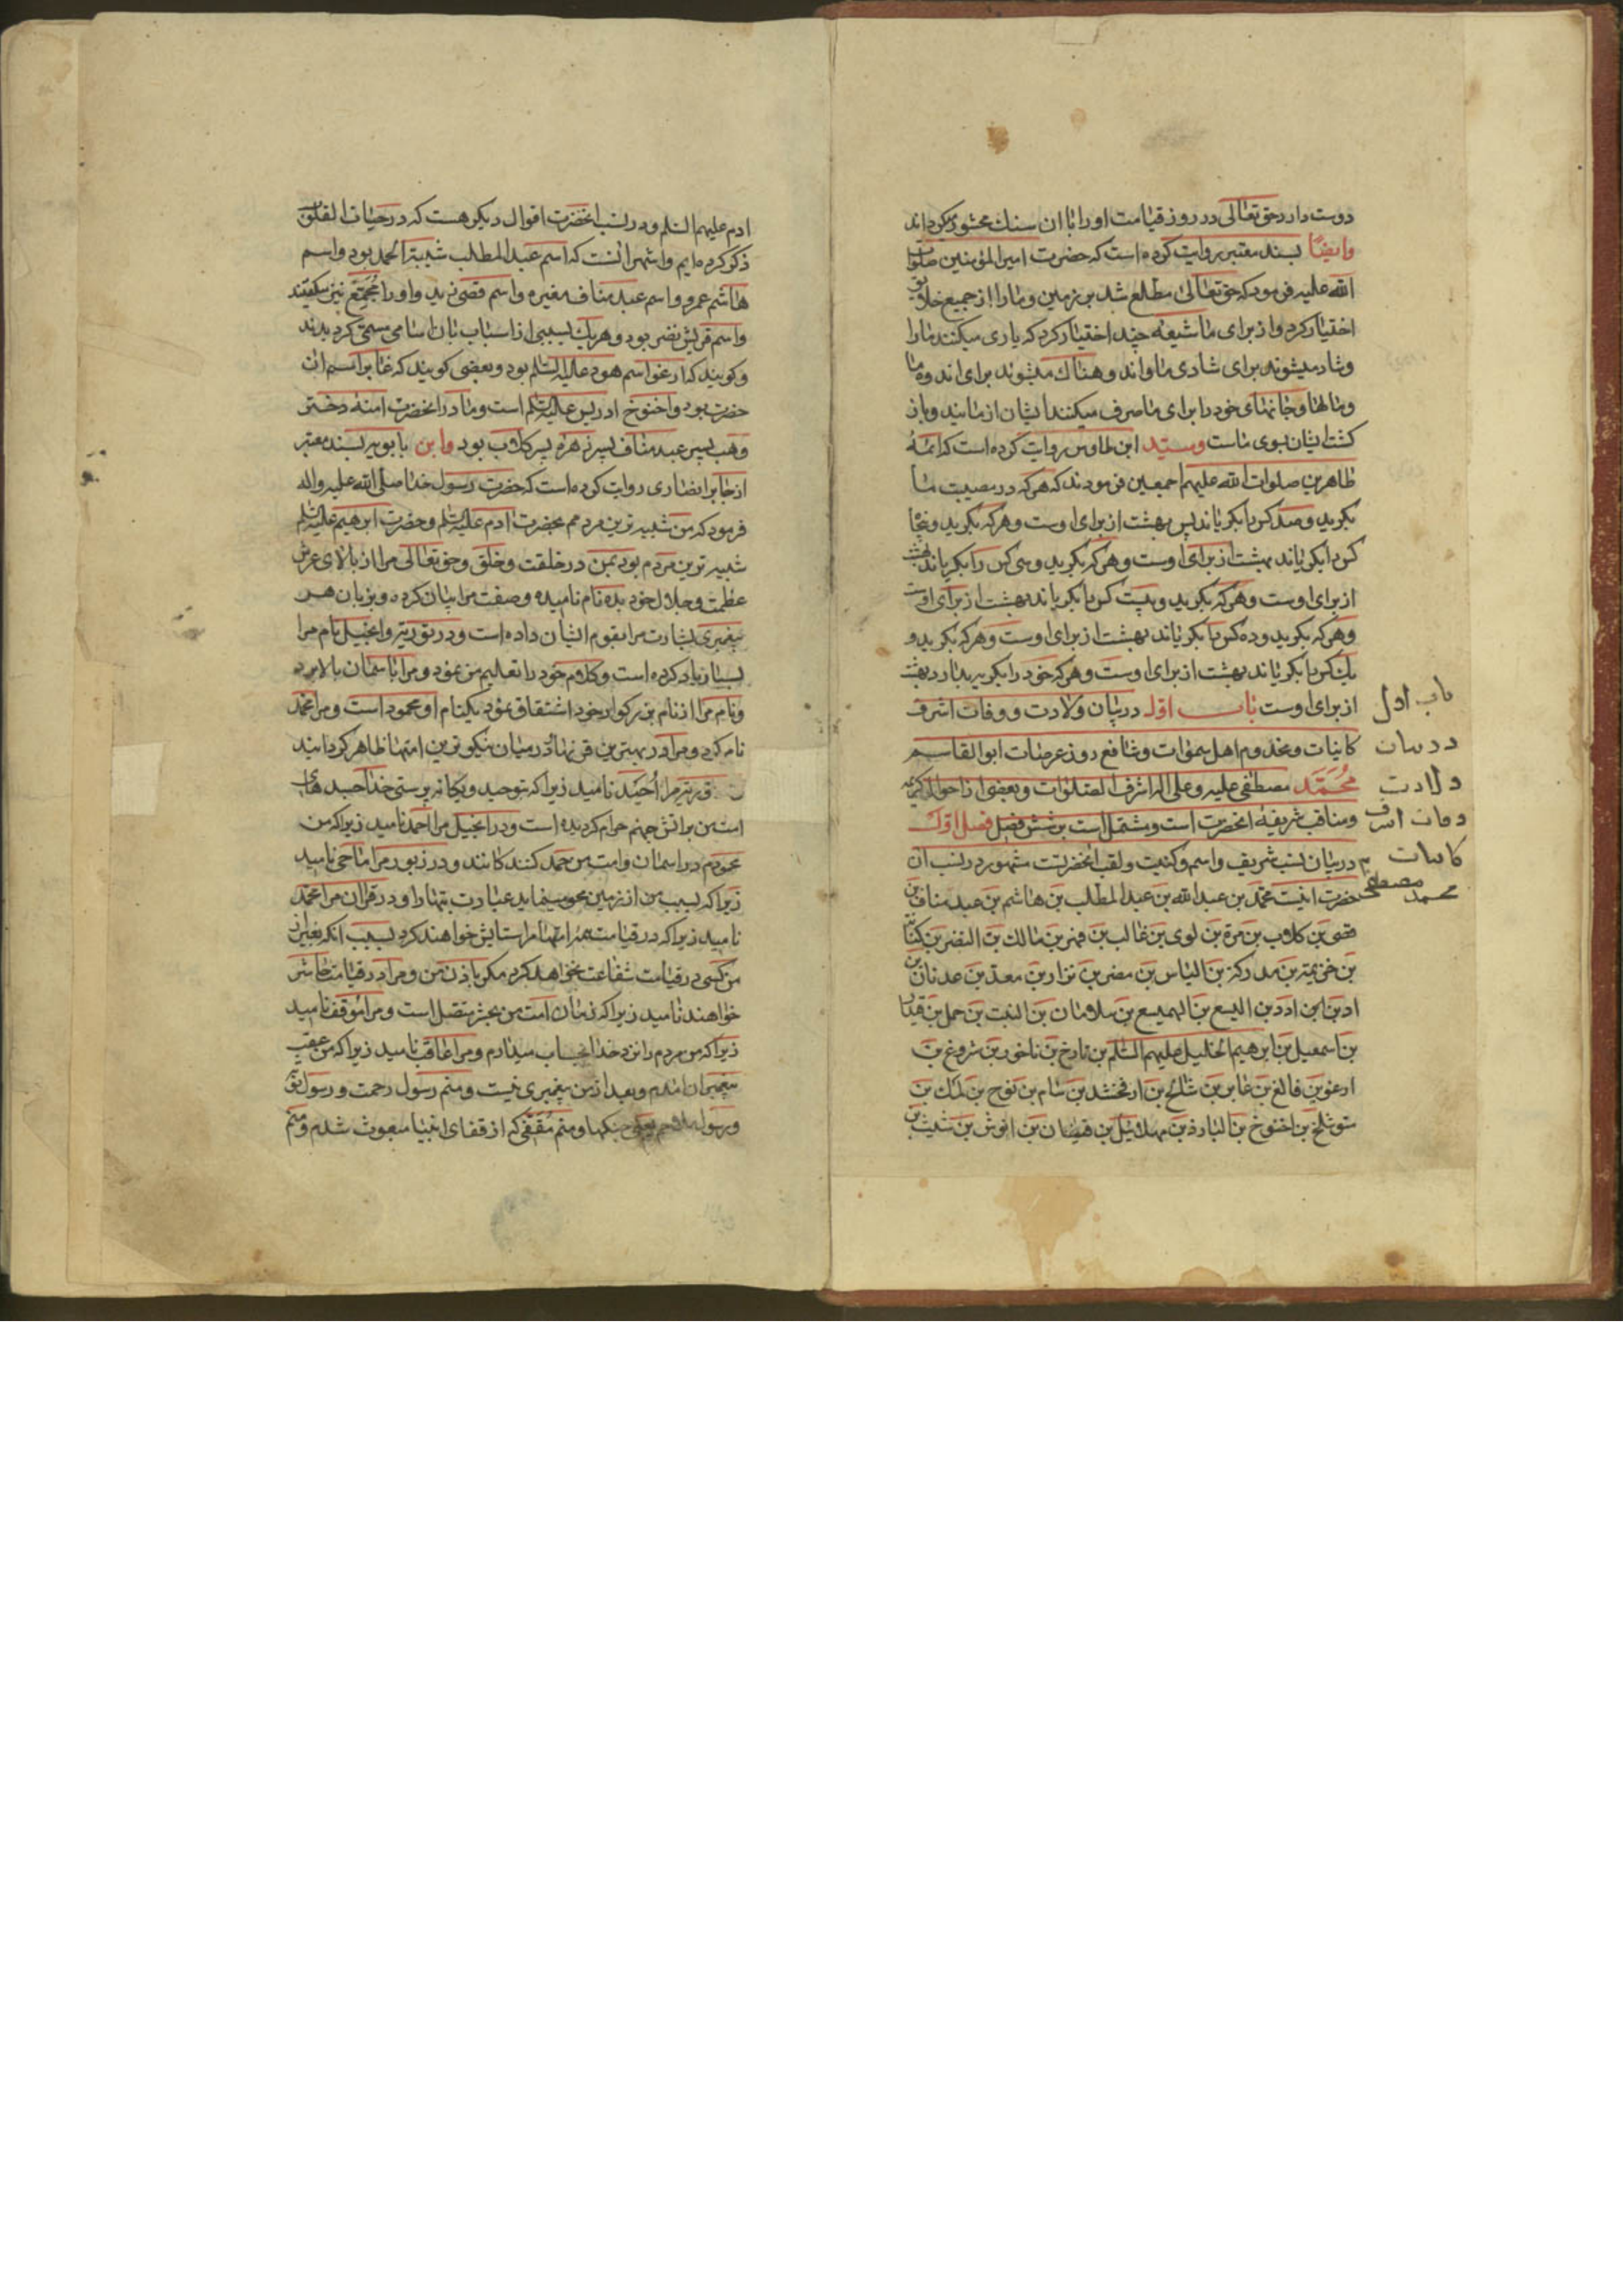 دوست دارد حق تعالی در روز قیامت او را با ان سنك محشور میکرداند
وایضًا بسند معتبر روایت کرده است که حضرت امیرالمؤمنین صلوات
الله علیه فرمود که حق تعالی مطلع شد بر زمین و مارا از جمیع خلایق
اختیار کرد و از برای ما شیعه چند اختیار کرد که یاری میکنند مارا
و شاد میشوند برای شادی ما و اندوهناك میشوند برای اندوه ما
و مالها و جانهای خود را برای ما صرف میکنند ایشان از مایند و باز
کشت ایشان بسوی ماست و سید ابن طاوس روایت کرده است که ائمهٔ
طاهرین صلوات الله علیهم اجمعین فرمودند که هر که در مصیبت ما
بکرید و صد کس را بکریاند پس بهشت از برای اوست و هر که بکرید و پنجاه
کس را بکریاند بهشت از برای اوست و هر که بکرید و سی کس را بکریاند بهشت
از برای اوست و هر که بکرید و بیست کس را بکریاند بهشت از برای اوست
و هر که بکرید و ده کس را بکریاند بهشت از برای اوست و هر که بکرید و
یك کس را بکریاند بهشت از برای اوست و هر که خود را بکریه بدارد بهشت
از برای اوست باب اول در بیان ولادت و وفات اشرف
کاینات و مخدوم اهل سموات و شافع روز عرصات ابوالقاسم
مُحَمَّد مصطفی علیه و علی اله اشرف الصلوات و بعضی از احوال کریمه
و مناقب شریفه انحضرت است و مشتمل است بر شش فصل فصل اول
در بیان نسب شریف و اسم و کنیت و لقب انحضرت مشهور در نسب ان
حضرت اینست محمد بن عبدالله بن عبدالمطلب بن هاشم بن عبد مناف بن
قصی بن کلاب بن مرة بن لوی بن غالب بن فهر بن مالك بن النضر بن کنانة
بن خزیمة بن مدرکة بن الیاس بن مضر بن نزار بن معد بن عدنان بن
اد بن ادد بن الیسع بن الهمیسع بن سلامان بن النبت بن حمل بن قیدار
بن اسمعیل بن ابرهیم الخلیل علیهم السلم بن تارخ بن ناخور بن شروغ بن
ارغو بن فالغ بن عابر بن شالخ بن ارفخشد بن سام بن نوح بن لمك بن
متوشلخ بن اخنوخ بن الیارد بن مهلائیل بن قینان بن انوش بن شیث بن
باب اول
در بیان
ولادت
وفات اشرف
کاینات
محمد مصطفی
ادم علیهم السلم و در نسب انحضرت اقوال دیکر هست که در حیات القلوب
ذکر کرده ایم و اشهر انست که اسم عبدالمطلب شیبة الحمد بود و اسم
هاشم عمرو و اسم عبد مناف مغیره و اسم قصی زید و او را مُجَمِّع نیز میکفتند
و اسم قریش نضر بود و هر یك بسببی از اسباب بان اسامی مسمی کردیدند
و کویند که ارغو اسم هود علیه السلم بود و بعضی کویند که عابر اسم ان
حضرت بود و اخنوخ ادریس علیه السلم است و مادر انحضرت امنه دختر
وهب پسر عبد مناف پسر زهره پسر کلاب بود و ابن بابویه بسند معتبر
از جابر انصاری روایت کرده است که حضرت رسول خدا صلی الله علیه واله
فرمود که من شبیه ترین مردمم بحضرت ادم علیه السلم و حضرت ابرهیم علیه السلم
شبیه ترین مردم بود بمن در خلقت و خلق و حق تعالی مرا از بالای عرش
عظمت و جلال خود بده نام نامیده و صفت مرا بیان کرده و بزبان هر
پیغمبری بشارت مرا بقوم ایشان داده است و در توریة و انجیل نام مرا
بسیار یاد کرده است و کلام خود را تعلیم من نمود و مرا باسمان بالا برد
و نام مرا از نام بزرکوار خود اشتقاق نمود یکنام او محمود است و مرا محمد
نام کرد و مرا در بهترین قرنها و در میان نیکوترین امتها ظاهر کردانید
توریة مرا اُحَیْد نامید زیرا که بتوحید و یکانه پرستی خدا جسدهای
امت من بر اتش جهنم حرام کردیده است و در انجیل مرا احمد نامید زیرا که من
محمودم در اسمان و امت من حمد کنندکانند و در زبور مرا ماحی نامید
زیرا که بسبب من از زمین محو مینماید عبادت بتها را و در قران مرا محمد
نامید زیرا که در قیامت همه امتها مرا ستایش خواهند کرد بسبب انکه بغیر از
من کسی در قیامت شفاعت نخواهد کرد مکر باذن من و مرا در قیامت حاشر
خواهند نامید زیرا که زمان امت من بحشر متصل است و مرا موقف نامید
زیرا که من مردم را نزد خدا بحساب میدارم و مرا عاقب نامید زیرا که من عقب
پیغمبران امدم و بعد از من پیغمبری نیست و منم رسول رحمت و رسول توبه
و رسول ملاحم یعنی جنکها و منم مُقَفّی که از قفای انبیا مبعوث شدم و منم